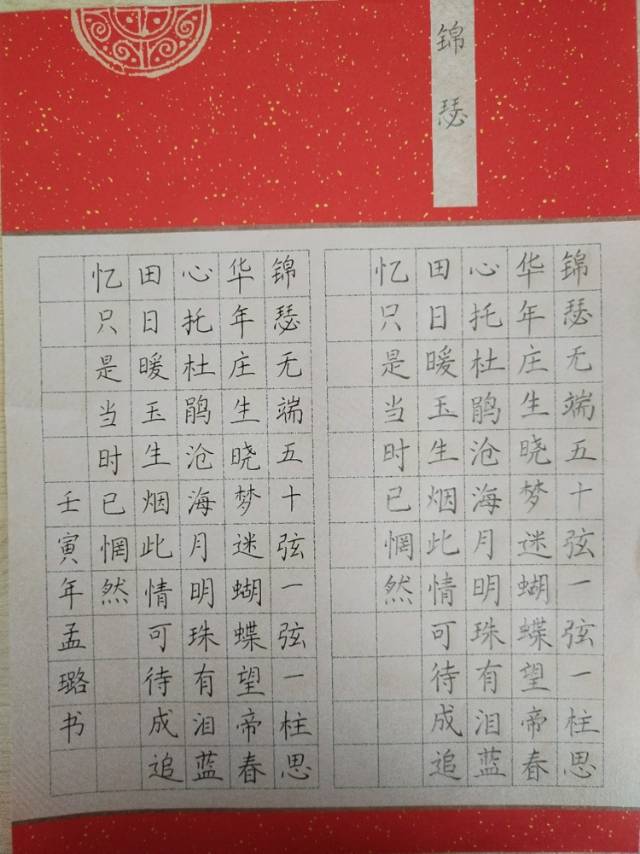 锦瑟
锦瑟无端五十弦一弦一柱思
华年庄生晓梦迷蝴蝶望帝春
心托杜鹃沧海月明珠有泪蓝
田日暖玉生烟此情可待成追
忆只是当时已惘然
锦瑟无端五十弦一弦一柱思
华年庄生晓梦迷蝴蝶望帝春
心托杜鹃沧海月明珠有泪蓝
田日暖玉生烟此情可待成追
忆只是当时已惘然
壬寅年孟璐书